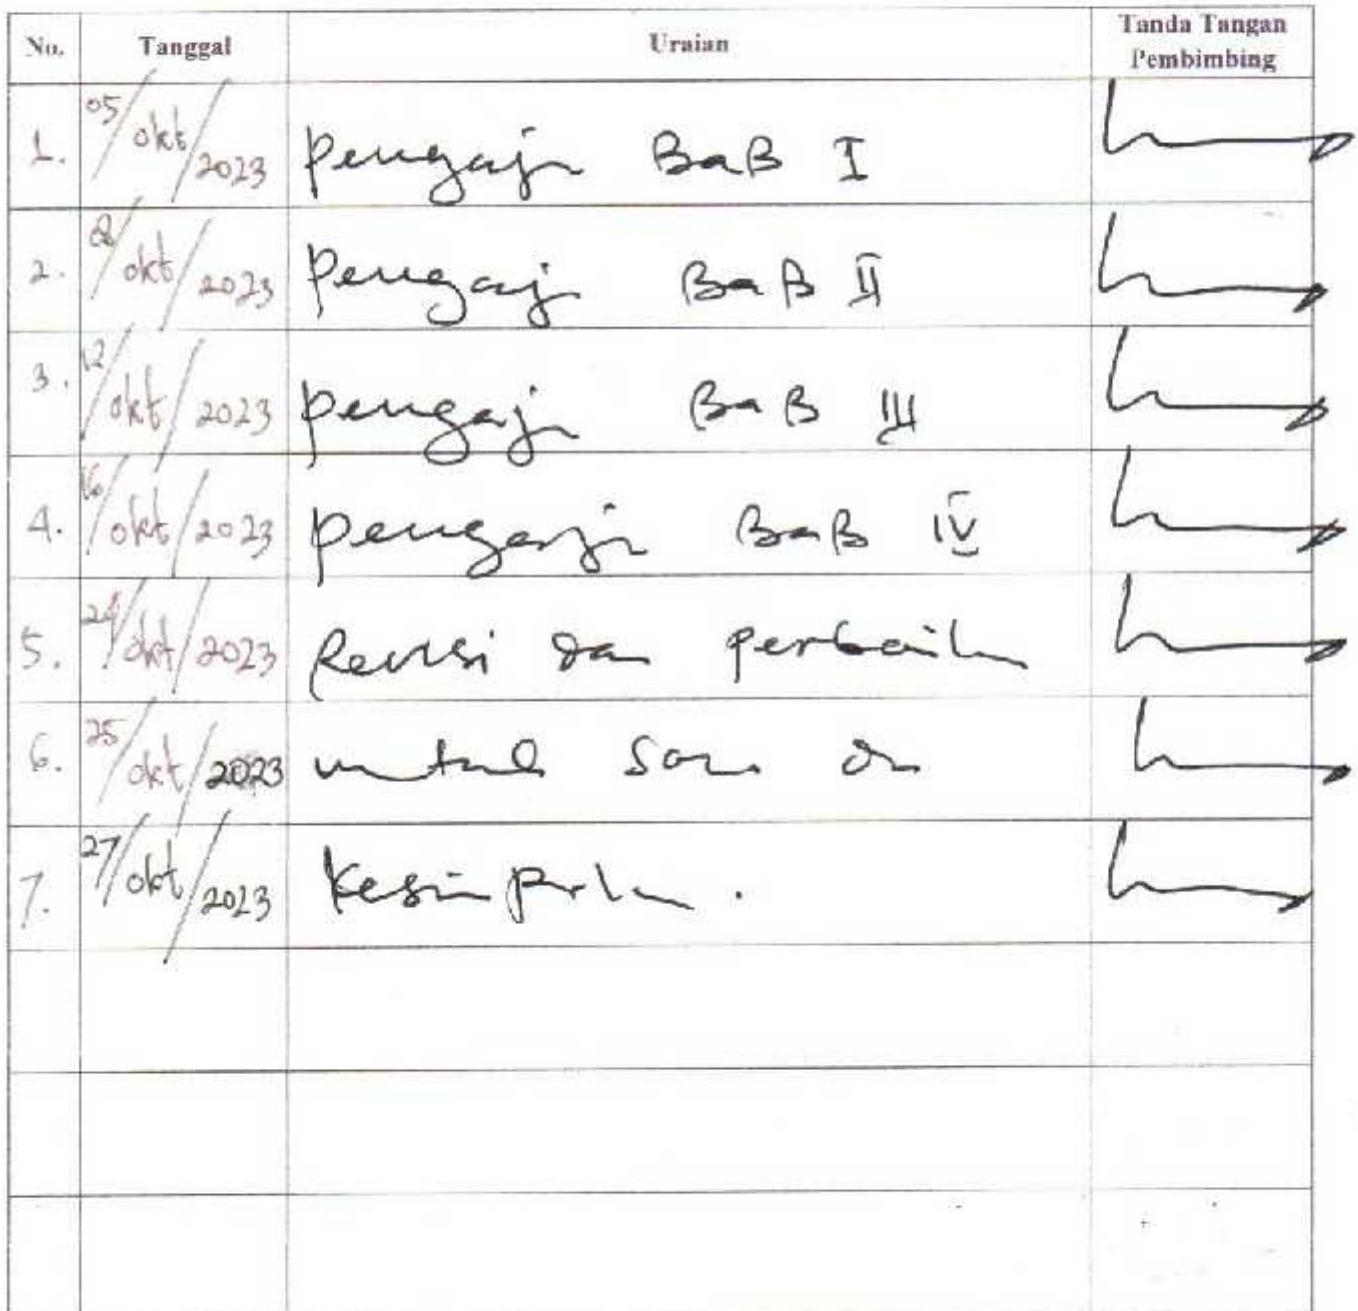 No. Tanggal Uraian Tanda Tangan Pembimbing
1. 05/okt/2023 Pengaji BaB I
2. 08/okt/2023 Pengaji BaB II
3. 12/okt/2023 Pengaji BaB III
4. 16/okt/2023 Pengaji BaB IV
5. 24/okt/2023 Revisi dan Perbaikan
6. 25/okt/2023 untuk dan
7. 27/okt/2023 Kesimpulan.